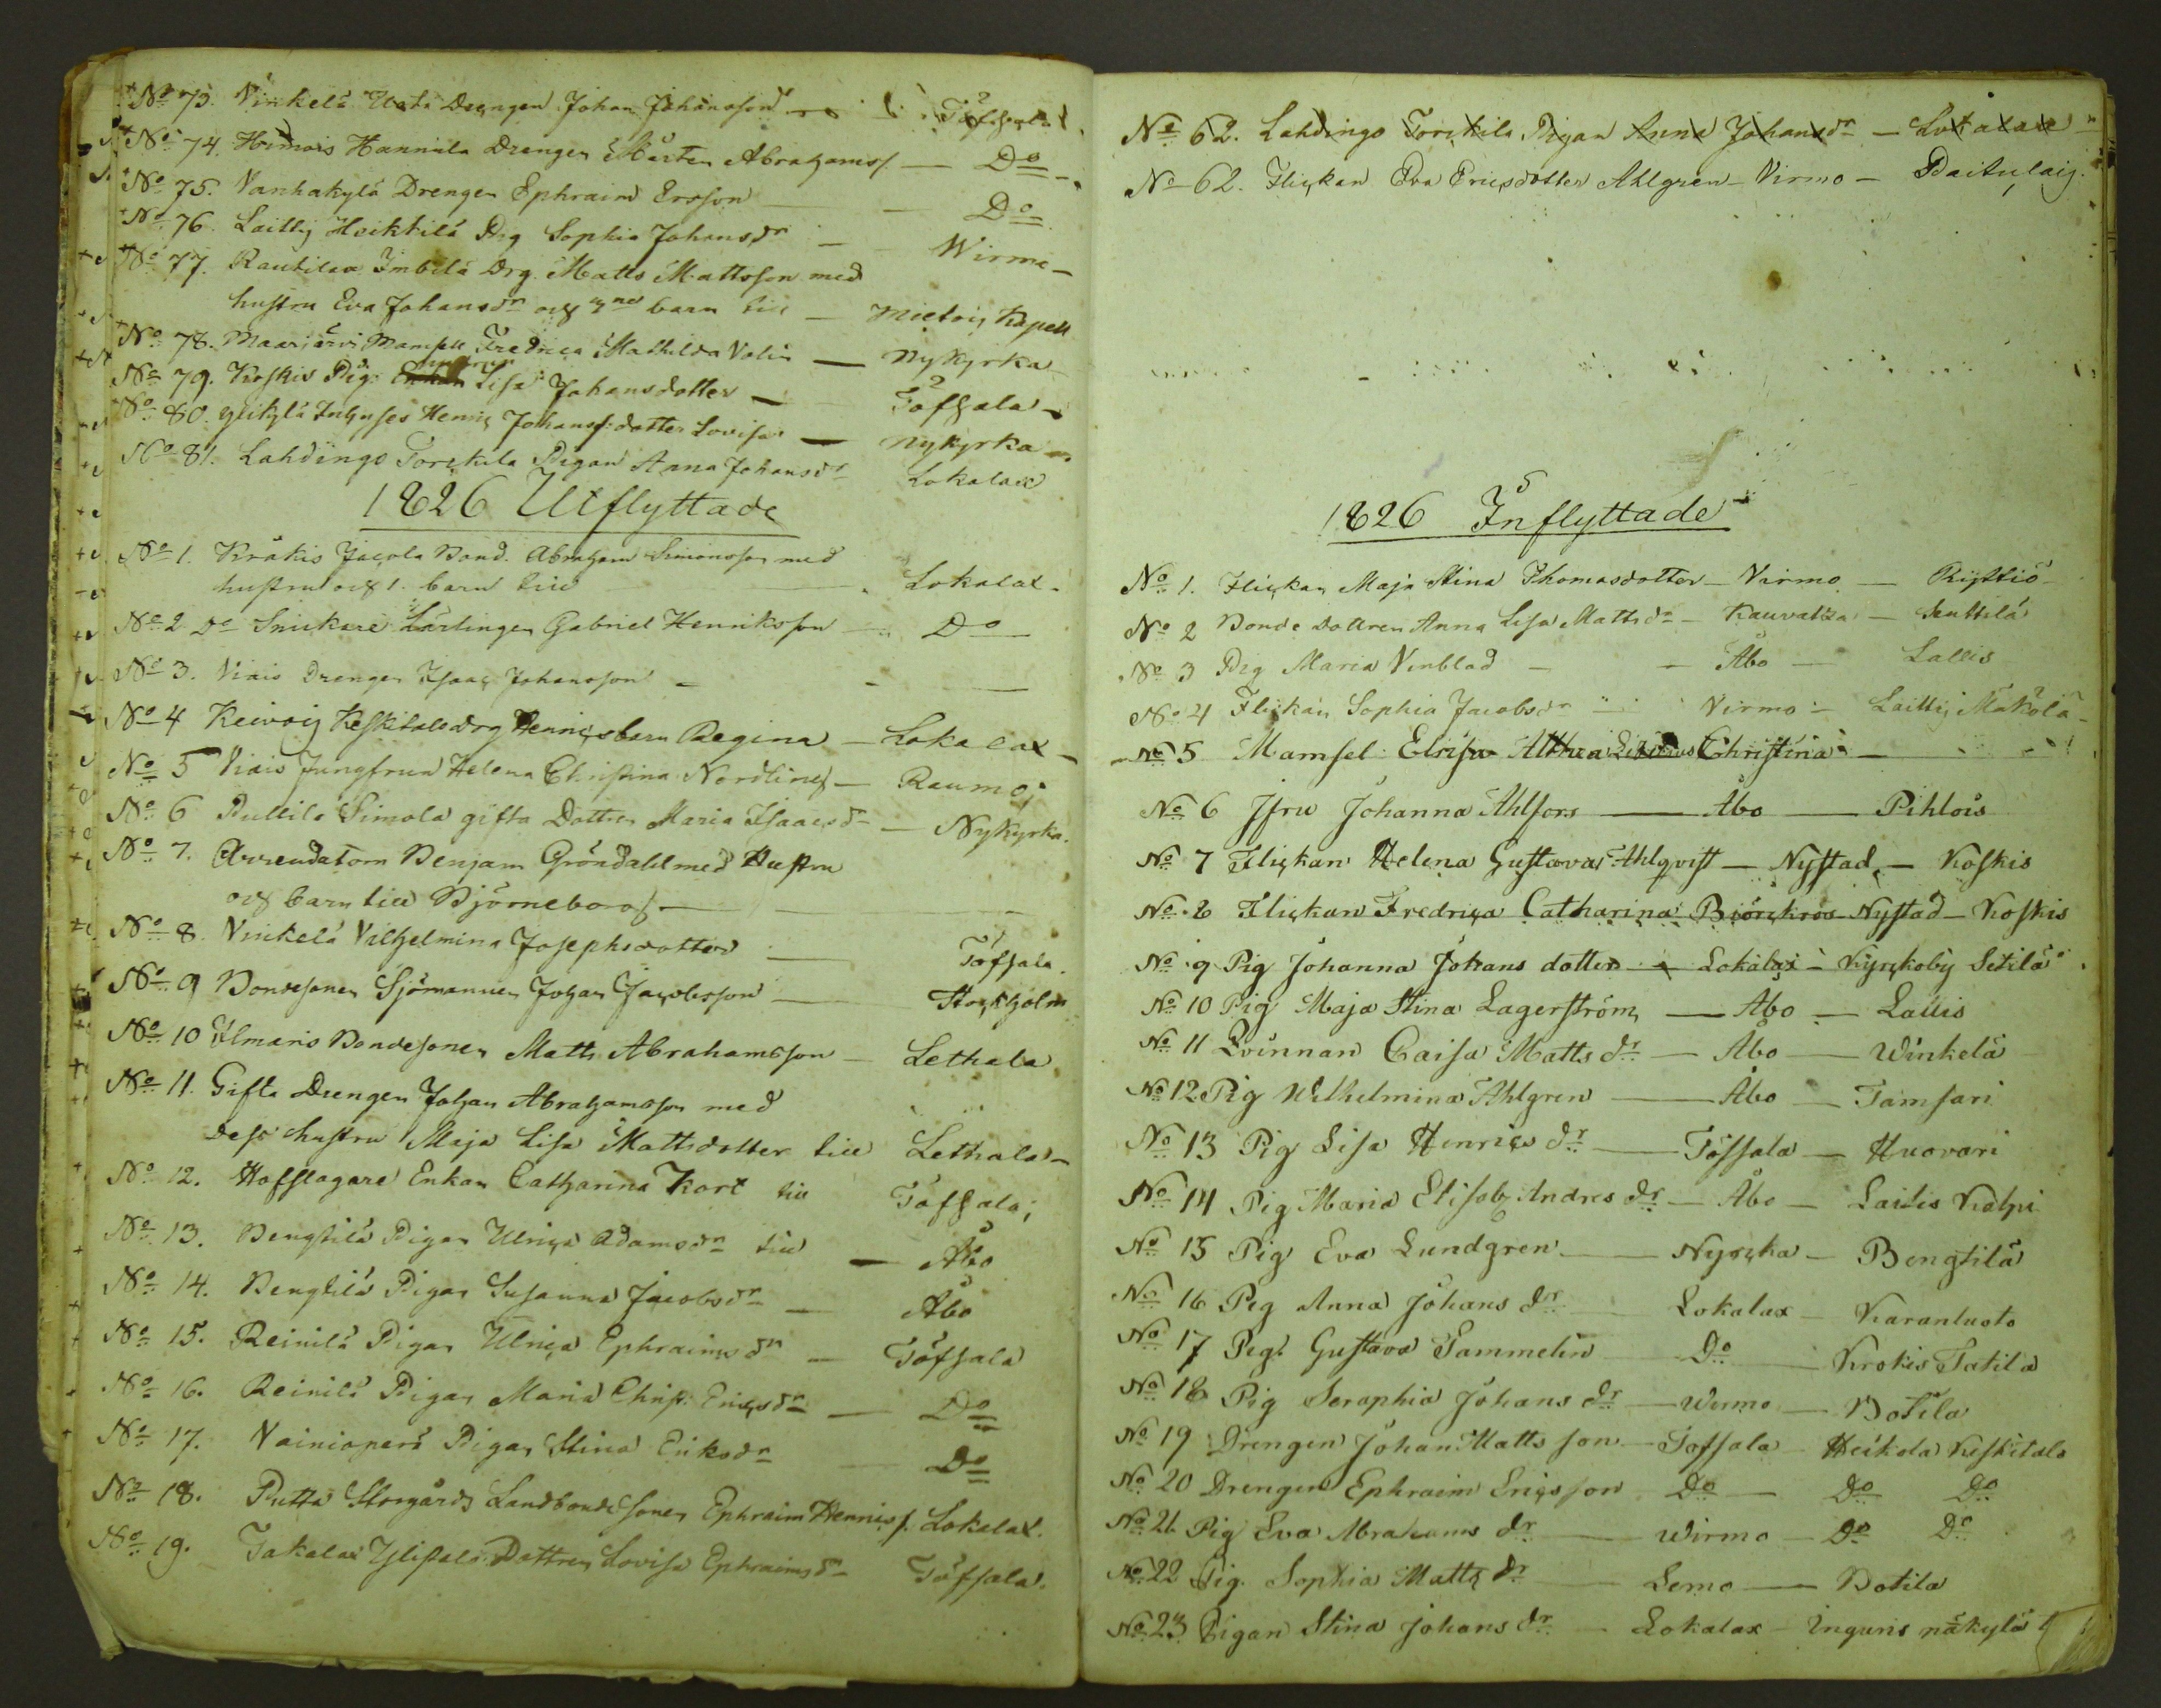 No 73. Vinkelä Drengen Johan Johansson Töfsala
No 74. Hannula Drengen Mårten Abrahamss. — Do
No 75. Vanhakylä Drengen Ephraim Ersson — Do
No 76. Laittis Heikkilä Pig Sophia Johansdr — Wirmo
No 77. Rautila Imbilä Drg. Matts Mattsson med
hustru Eva Johansdr och barn till — Mietois Kapell
No 78. Maarjärvi Mamsell Fredrica Mathilda Valin — Nykyrka
No 79. Koskis Pig: Lisa Johansdotter — Töfsala
No 80. Ylikylä Inhyses Henric Johanss: dotter Lovisa — Nykyrka
No 81. Lahdingo Torckila Pigan Anna Johansdr Lokalax
1826 Utflyttade
No 1. Kråkis Jacola Bond. Abraham Simonsson med
hustru och 1. barn till Lokalax.
No 2 Do Snickare Lärlingen Gabriel Henriksson — Do
No 3. Viais Drengen Isaac Johansson —
No 4 Keivois Keskitalo drg Henrics barn Regina — Lokalax
No 5 Viais Jungfrun Helena Christina Nordlind — Raumo
No 6 Puttila Simola gifta Dottren Maria Isaacsdr — Nykyrka.
No 7. Arrendatorn Benjam Gröndahl med Hustru
och barn till Björneborg
No 8. Vinkelä Vilhelmina Josephsdotter — Töfsala.
No 9 Bondesonen Sjömannen Johan Jacobsson — Stockholm
No 10 Elmaris Bondesonen Matts Abrahamsson — Lethala
No 11. Gifta Drengen Johan Abrahamsson med
dess hustru Maja Lisa Mattsdotter till Lethala
No 12. Hofslagare Enkan Catharina Kort till Töfsala;
No 13. Bengtilä Pigan Ulrica Adamsdr till — Åbo
No 14. Bengtilä Pigan Susanna Jacobsdr — Åbo
No 15. Reinilä Pigan Ulrica Ephraimsdr — Töfsala
No 16. Reinilä Pigan Maria Christ: Ericsdr — Do
No 17. Vainionperä Pigan Stina Eriksdr Do
No 18. Putta Storgårds Landbonde Sonen Ephraim Henricss. Lokalax.
No 19. Takalax Ylistalo Dottren Lovisa Ephraimsdr Töfsala.
No 62. Lahdingo Torckila Pigan Anna Johansdr — Lokalax
No 62. Flickan Eva Ericsdotter Ahlgren — Virmo —
1826 Inflyttade
No 1. Flickan Maja Stina Thomasdotter — Virmo — Ryttiö
No 2 Bonde Dottren Anna Lisa Mattsdr — Kauvatza — Suttilä
No 3 Pig Maria Vinblad — Åbo — Lallis
No 4 Flickan Sophia Jacobsdr Virmo — Laittis Mäkölä
No 5 Mamsel Althea Christina —
No 6 Jfru Johanna Ahlfors — Åbo — Pihlois
No 7 Flickan Helena Gustava Ahlqvist — Nystad — Koskis
No 8 Flickan Fredrica Catharina Björckroos Nystad — Koskis
No 9 Pig Johanna Johans dotter — Lokalax — Kyrckoby Setilä
No 10 Pig Maja Stina Lagerström — Åbo — Lallis
No 11 Qvinnan Caisa Matts dr — Åbo — Winkelä
No 12 Pig Wilhelmina Ahlgren — Åbo — Tamsari
No 13 Pig Lisa Henrics dr — Töfsala — Huovari
No 14 Pig Maria Elisab. Andres dr — Åbo — Laitis Kälpi
No 15 Pig Eva Lundgren — Nyrcka — Bengtilä
No 16 Pig Anna Johans dr Lokalax — Karanluoto
No 17 Pig. Gustava Sammelin Do — Krokis Tatila
No 18 Pig Seraphia Johans dr — Wirmo — Botila
No 19 Drengen Johan Matts son — Töfsala — Heikola Keskitalo
No 20 Drengen Ephraim Ericsson Do — Do Do
No 21 Pig Eva Abrahams dr — Wirmo — Do Do
No 22 Pig. Sophia Matts dr — Lemo — Botila
No 23 Pigan Stina Johans dr — Lokalax — Inguris näkylä